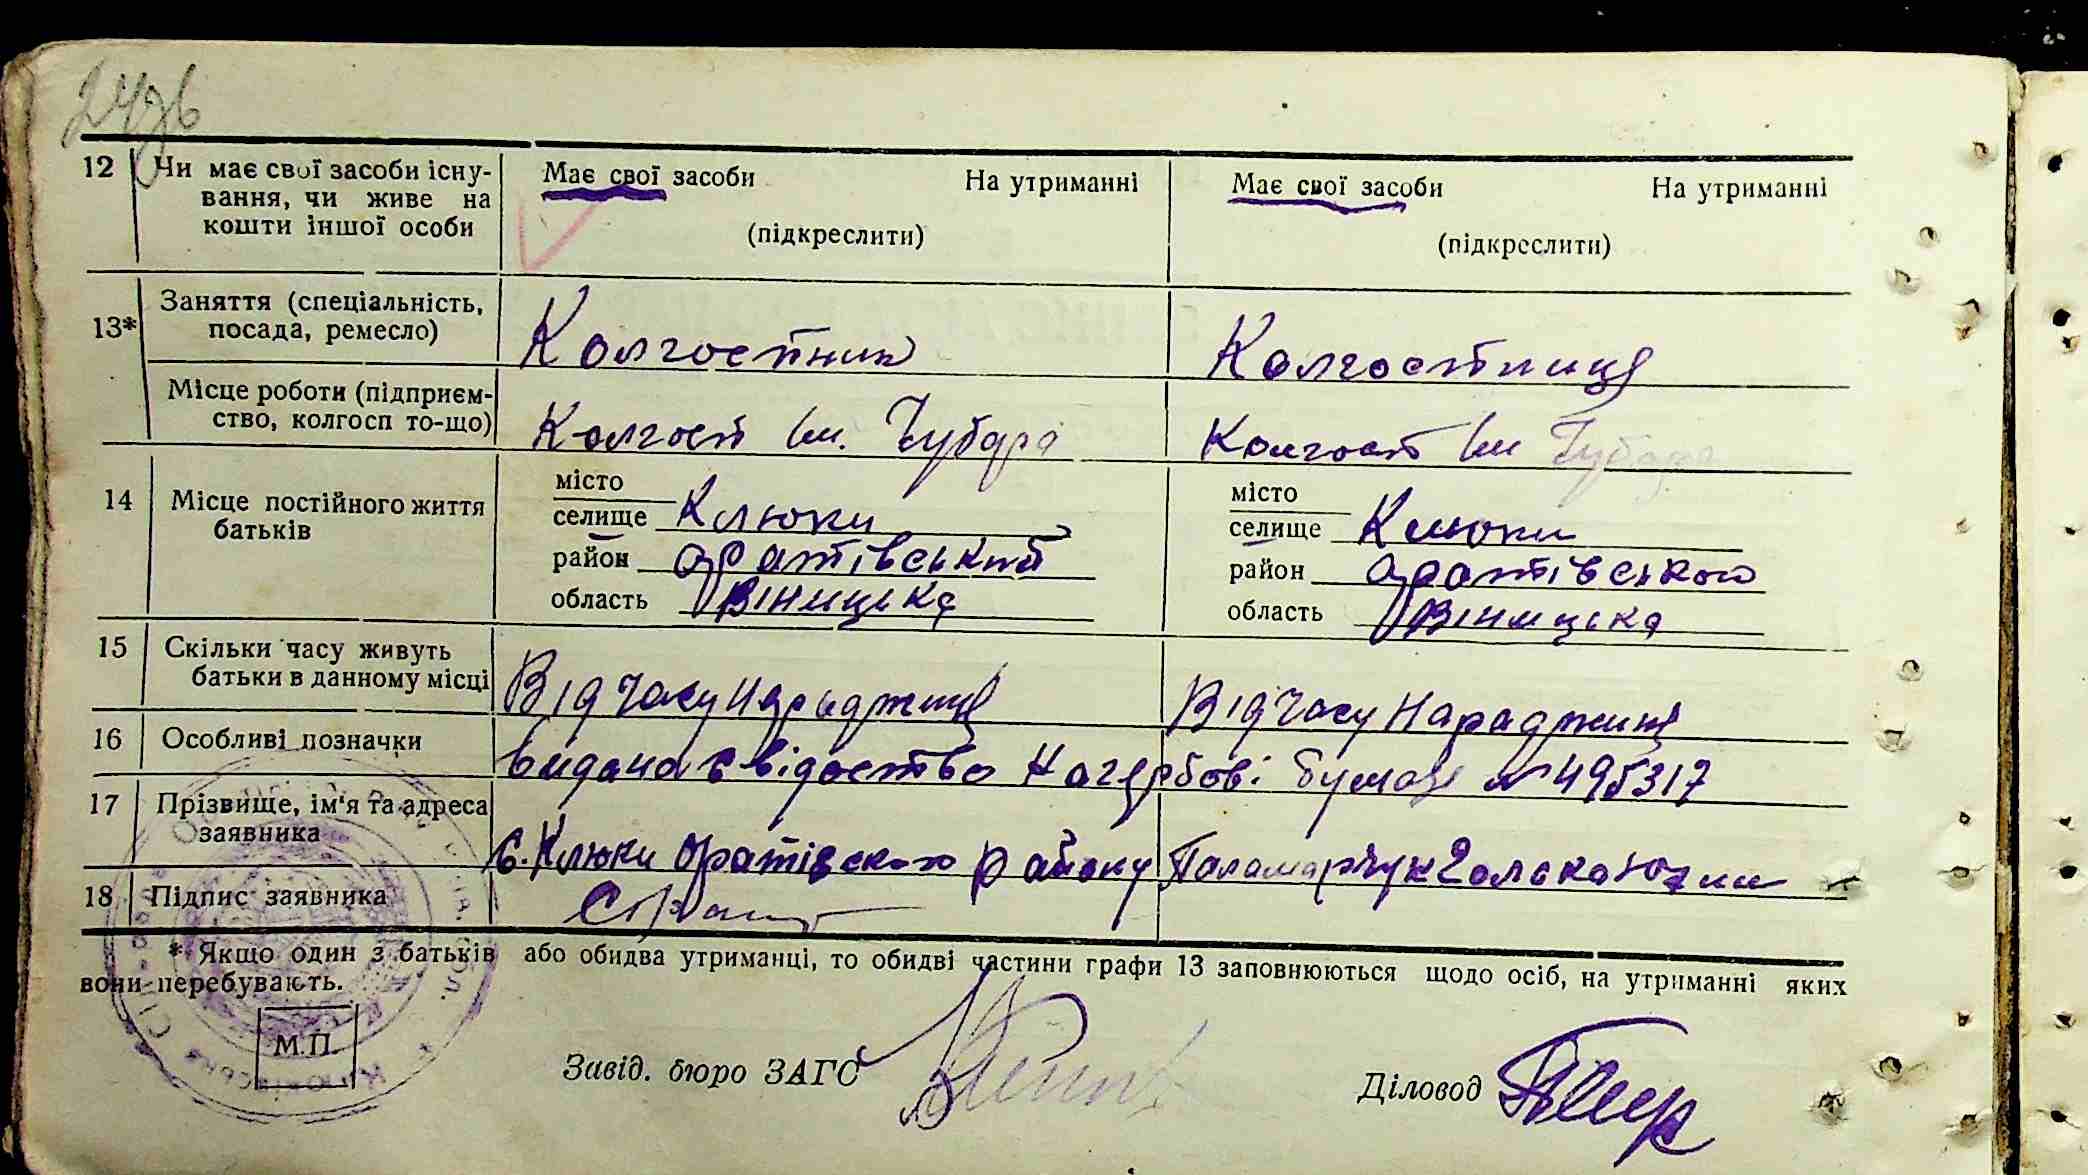 247б
12 Чи має свої засоби існу-
вання, чи живе на
кошти іншої особи
Має свої засоби На утриманні
(підкреслити)
Має свої засоби На утриманні
(підкреслити)
13* Заняття (спеціальність,
посада, ремесло)
Колгоспник
Колгоспниця
Місце роботи (підприєм-
ство, колгосп то-що)
Колгосп Ім. Чубаря
Колгосп Ім Чубаря
14 Місце постійного життя
батьків
місто
селище Клюки
район оратівський
область Віницька
місто
селище Клюки
район оратівського
область Віницька
15 Скільки часу живуть
батьки в данному місці
Від часу Народжиня
Від часу Нараджиня
16 Особливі позначки
видано свідоство На гербові бумазі № 495317
17 Прізвище, ім'я та адреса
заявника
с. Клюки Оратівского району Паламарчук
18 Підпис заявника
* Якщо один з батьків або обидва утриманці, то обидві частини графи 13 заповнюються щодо осіб, на утриманні яких
вони перебувають.
М.П.
Завід. бюро ЗАГС
Діловод